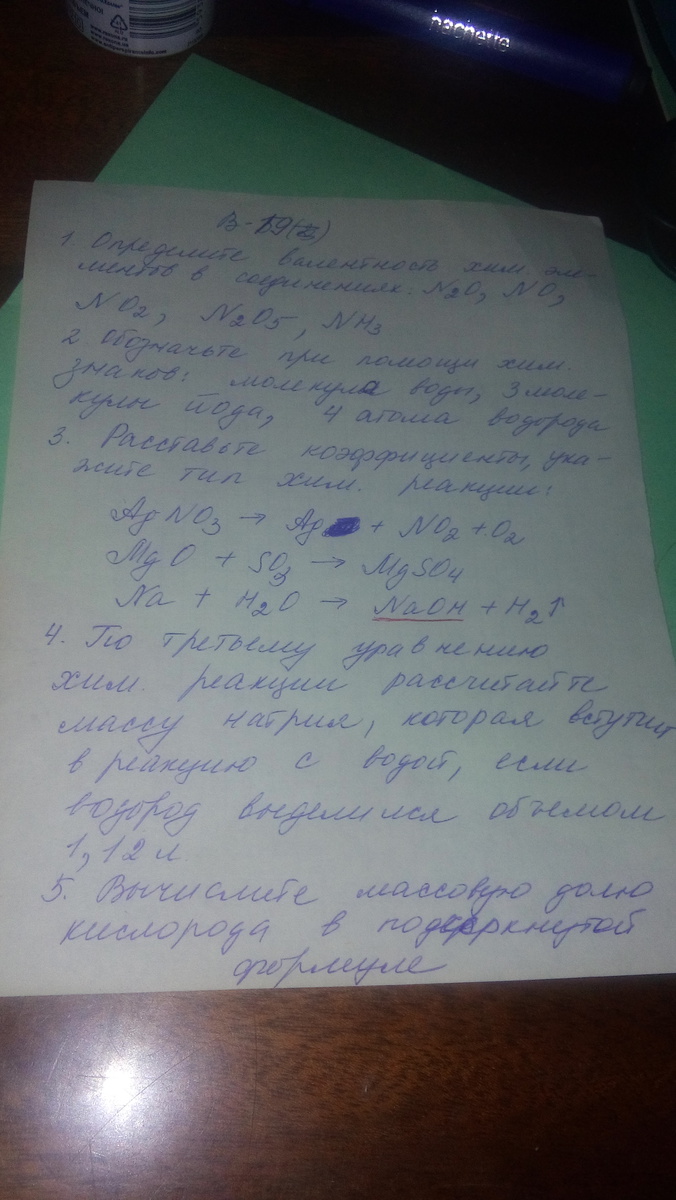 hachette
В-19(2)
1. Определите валентность хим эле-
ментов в соединениях: N2O, NO,
NO2, N2O5, NH3
2. Обозначьте при помощи хим.
знаков: молекула воды, 3 моле-
кулы йода, 4 атома водорода
3. Расставьте коэффициенты, ука-
жите тип хим. реакции:
AgNO3 → Ag + NO2 + O2
MgO + SO3 → MgSO4
Na + H2O → NaOH + H2↑
4. По третьему уравнению
хим. реакции рассчитайте
массу натрия, которая вступит
в реакцию с водой, если
водород выделился объемом
1,12 л
5. Вычислите массовую долю
кислорода в подчеркнутой
формуле